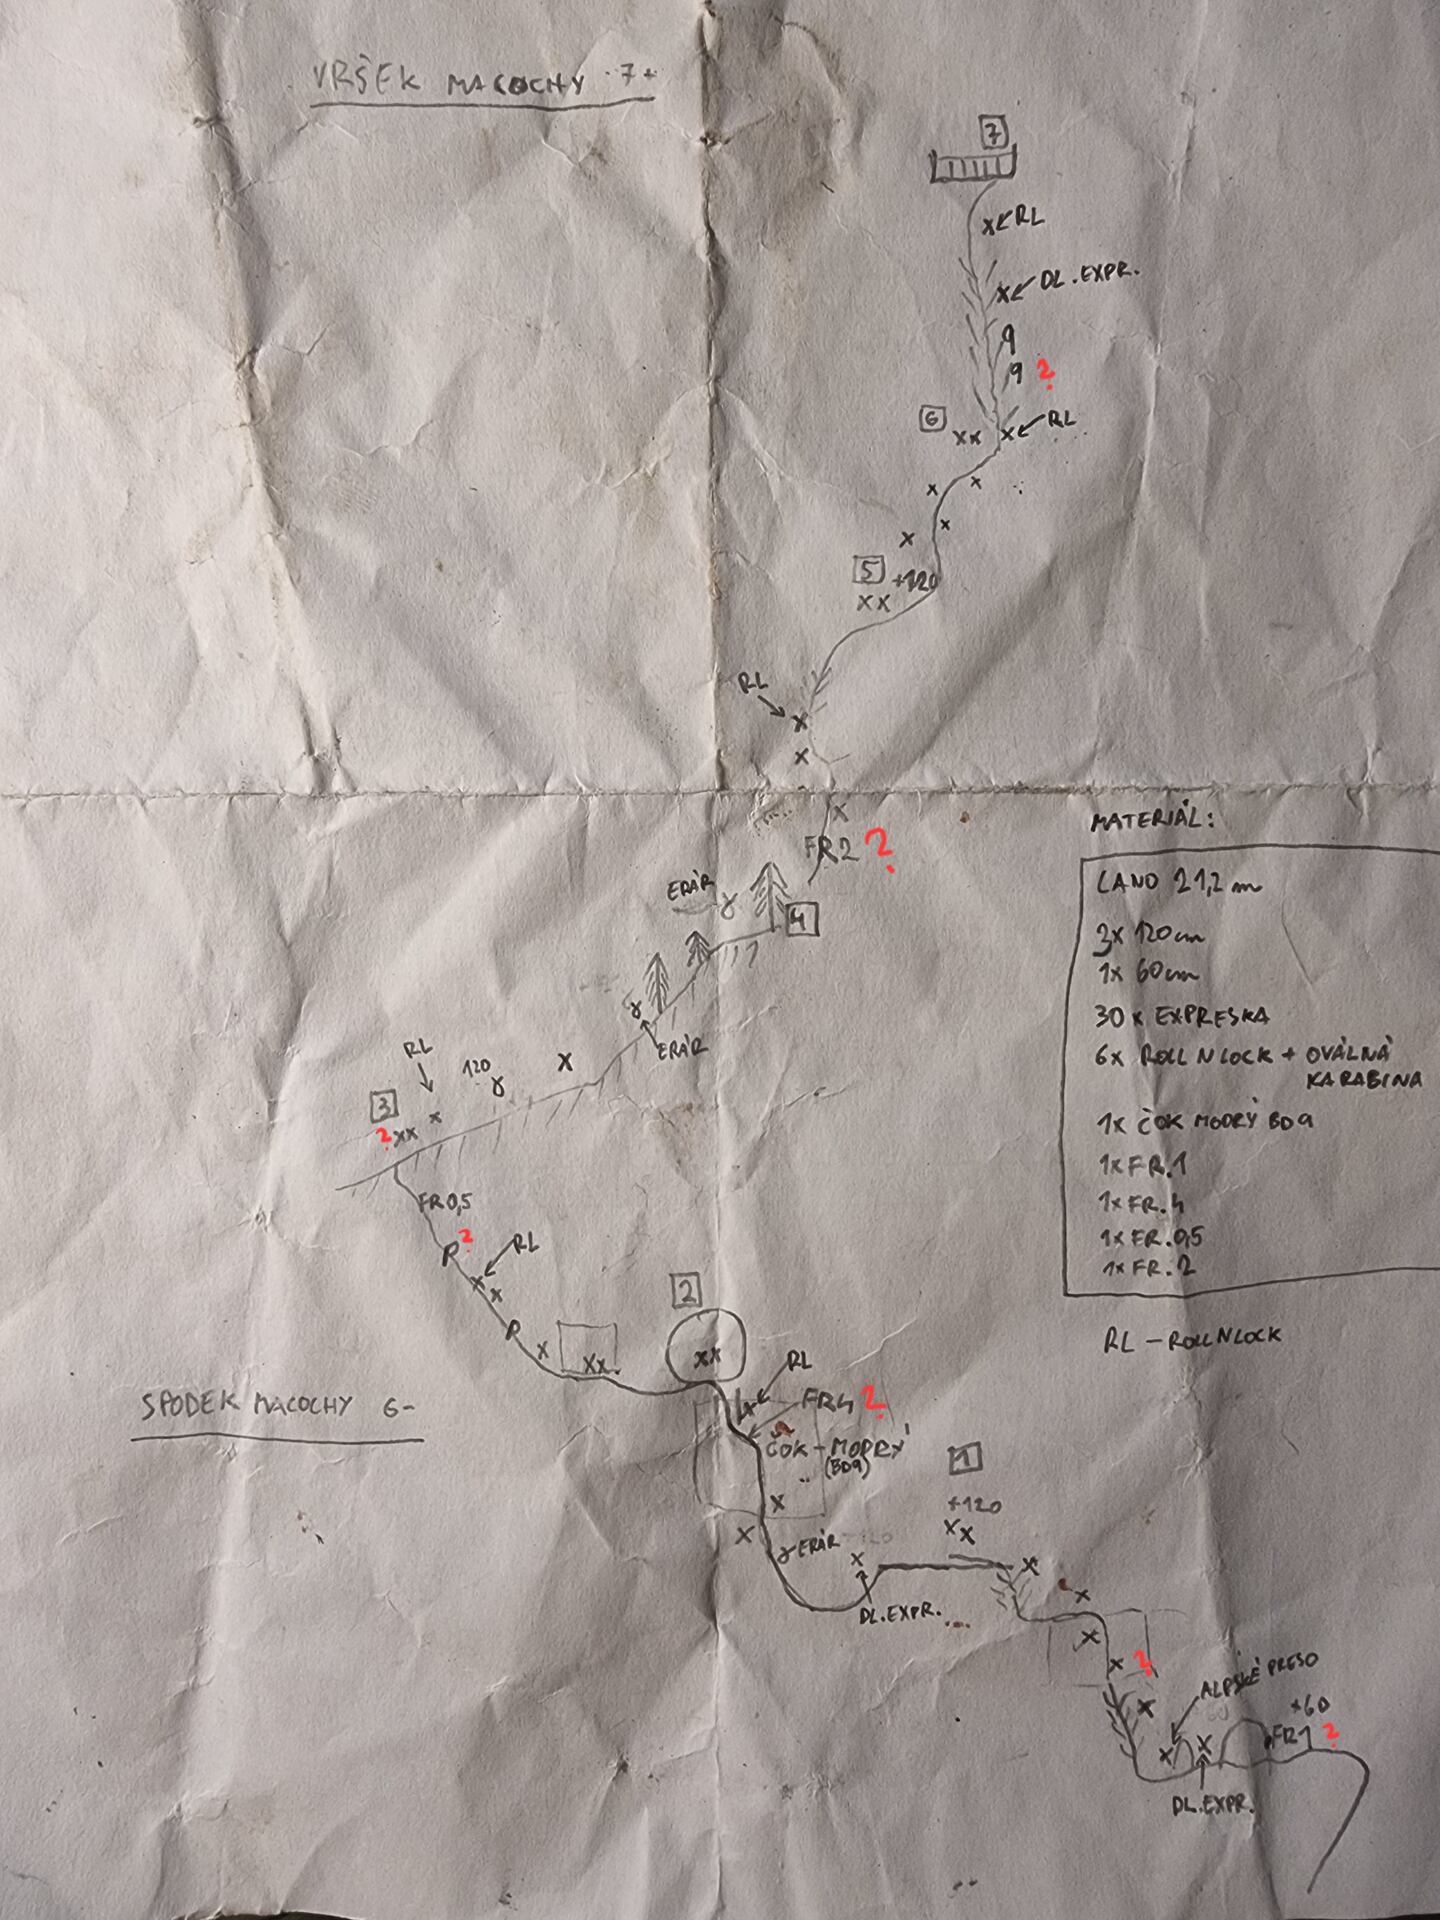 VRŠEK MACOCHY 7+
7
X RL
X DL.EXPR.
9
9 ?
6 XX X RL
X X
X
X
5 +120
XX
RL
X
X
X
FR2 ?
ERÁR
4
ERÁR
RL
120 X
3 X
? XX
FR0,5
?
RL
X
X
X
XX
2
XX
RL
X
FR4 ?
ČOK-MODRÝ
(BD9)
X
X
ERÁR
X
DL.EXPR.
1
+120
XX
X
X
X
X ?
X
ALPSKÉ PRESO
X X
+60
FR1 ?
DL.EXPR.
SPODEK MACOCHY 6-
MATERIÁL:
LANO 21,2 m
3x 120cm
1x 60cm
30x EXPRESKA
6x ROLL N LOCK + OVÁLNÁ
KARABINA
1x ČOK MODRÝ BD9
1x FR.1
1x FR.4
1x FR.0,5
1x FR.2
RL - ROLLNLOCK